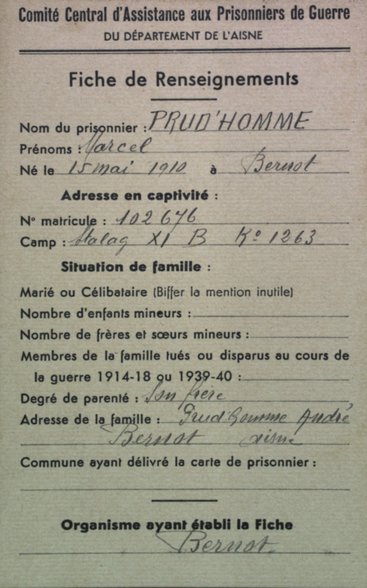 Comité Central d'Assistance aux Prisonniers de Guerre
DU DÉPARTEMENT DE L'AISNE
Fiche de Renseignements
Nom du prisonnier : PRUD'HOMME
Prénoms : Marcel
Né le 15 mai 1910 à Bernot
Adresse en captivité :
N° matricule : 102676
Camp : Stalag XI B K° 1263
Situation de famille :
Marié ou Célibataire (Biffer la mention inutile)
Nombre d'enfants mineurs :
Nombre de frères et sœurs mineurs :
Membres de la famille tués ou disparus au cours de
la guerre 1914-18 ou 1939-40 :
Degré de parenté : Son frère
Adresse de la famille : Prud'homme André
Bernot Aisne
Commune ayant délivré la carte de prisonnier :
Organisme ayant établi la Fiche
Bernot